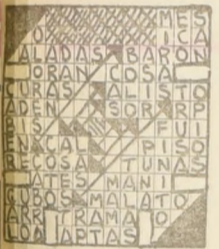 MES
O ICA
ALADAS BARON
ORAN COSA
CURAS ALISTO
ADEN SOR RP
FUI
EN CAL PISO
RECOSA TUNAS
ATES MANI
GLOBOS MALATO
ARR TRAMA O
LO APTAS